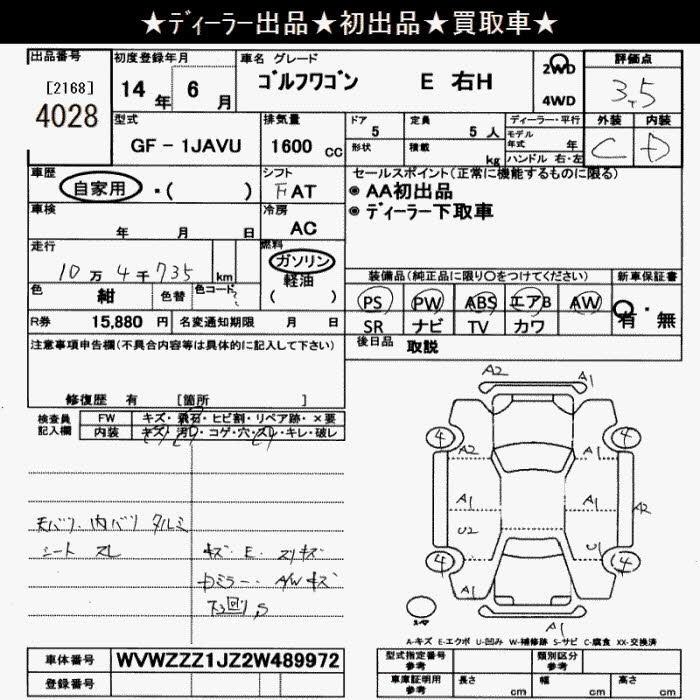 ★ディーラー出品★初出品★買取車★
出品番号 初度登録年月 車名 グレード 2WD 評価点
[2168] 14 年 6 月 ゴルフワゴン E 右H 4WD 3.5
4028
型式 排気量 ドア 定員 ディーラー・平行 外装 内装
GF - 1JAVU 1600 cc 5 5 人 モデル年式 年 C D
形状 積載 kg ハンドル 右・左
車歴 シフト セールスポイント(正常に機能するものに限る)
自家用 ・( ) F AT ◉ AA初出品
車検 冷房 ◉ ディーラー下取車
年 月 日 AC
走行 燃料
10 万 4 千 735 km ガソリン
軽油
( )
装備品(純正品に限り〇をつけてください) 新車保証書
色 紺 色替 色コード
PS PW ABS エアB AW 有・無
SR ナビ TV カワ
R券 15,880 円 名変通知期限 月 日
後日品 取説
注意事項申告欄(不具合内容等は具体的に記入して下さい)
修復歴 有 [箇所 ]
検査員記入欄 FW キズ・飛石・ヒビ割・リペア跡・×要
内装 キズ・汚レ・コゲ・穴・スレ・キレ・破レ
天バリ 内バリ タルミ
シート スレ キズ・E・スリキズ
ミラー・A/W キズ
下回り S
A2 A1
4 4
A2 A1
A1 A1 A2
U2 U1
4 4
A1
A1
A-キズ E-エクボ U-凹み W-補修跡 S-サビ C-腐食 XX-交換済
車体番号 WVWZZZ1JZ2W489972 型式指定番号 参考 類別区分 参考
登録番号 車庫証明用 参考 長さ cm 幅 cm 高さ cm